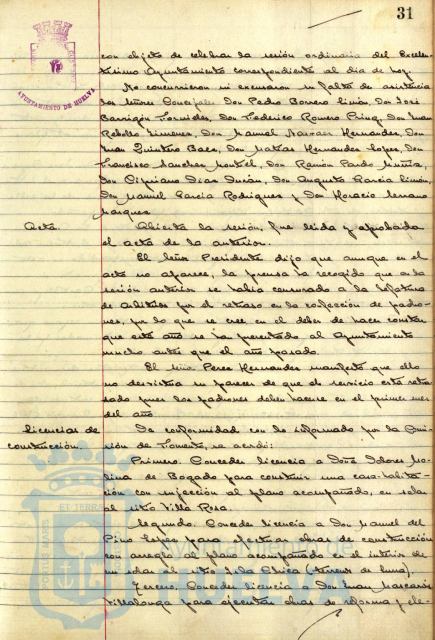 31
AYUNTAMIENTO DE HUELVA
con objeto de celebrar la sesión ordinaria del Excelen-
tísimo Ayuntamiento correspondiente al día de hoy.
No concurrieron ni excusaron su falta de asistencia
los Señores Concejales Don Pedro Borrero Limón, Don José
Barrigón Don Federico Romero Don Juan
Rebollo Jimenez, Don Manuel Hernandez, Don
Juan Quintero Baez, Don Matias Hernandez Lopez, Don
Francisco Sanchez Don Ramón Pardo
Don Cipriano Diaz Durán, Don Augusto García Limón,
Don Manuel García Rodriguez y Don Horacio
Marquez.
Acta. Abierta la sesión, fue leida y aprobada
el acta de la anterior.
El Señor Presidente dijo que aunque en el
acta no aparece, la prensa ha recogido que en la
sesión anterior se había censurado a la Jefatura
de Arbitrios por el retraso en la confección de padro-
nes, por lo que se cree en el deber de hacer constar
que este año se ha presentado al Ayuntamiento
mucho antes que el año pasado.
El señor Perez Hernandez manifestó que ello
no desvirtua su parecer de que el servicio está retra-
sado pues los padrones deben hacerse en el primer mes
del año
Licencias de De conformidad con lo informado por la Comi-
construcción. sión de Fomento, se acordó:
Primero. Conceder licencia a Doña Dolores Mo-
lina de Bogado para construir una casa-habita-
ción con sujeción al plano acompañado, en solar
al sitio Villa Rosa.
Segundo. Conceder licencia a Don Manuel del
Pino Lopez para efectuar obras de construcción
con arreglo al plano acompañado en el interior de
un solar al sitio Isla Chica
Tercero. Conceder licencia a Don Juan Mascarós
Villalonga para ejecutar obras de reforma y ele-